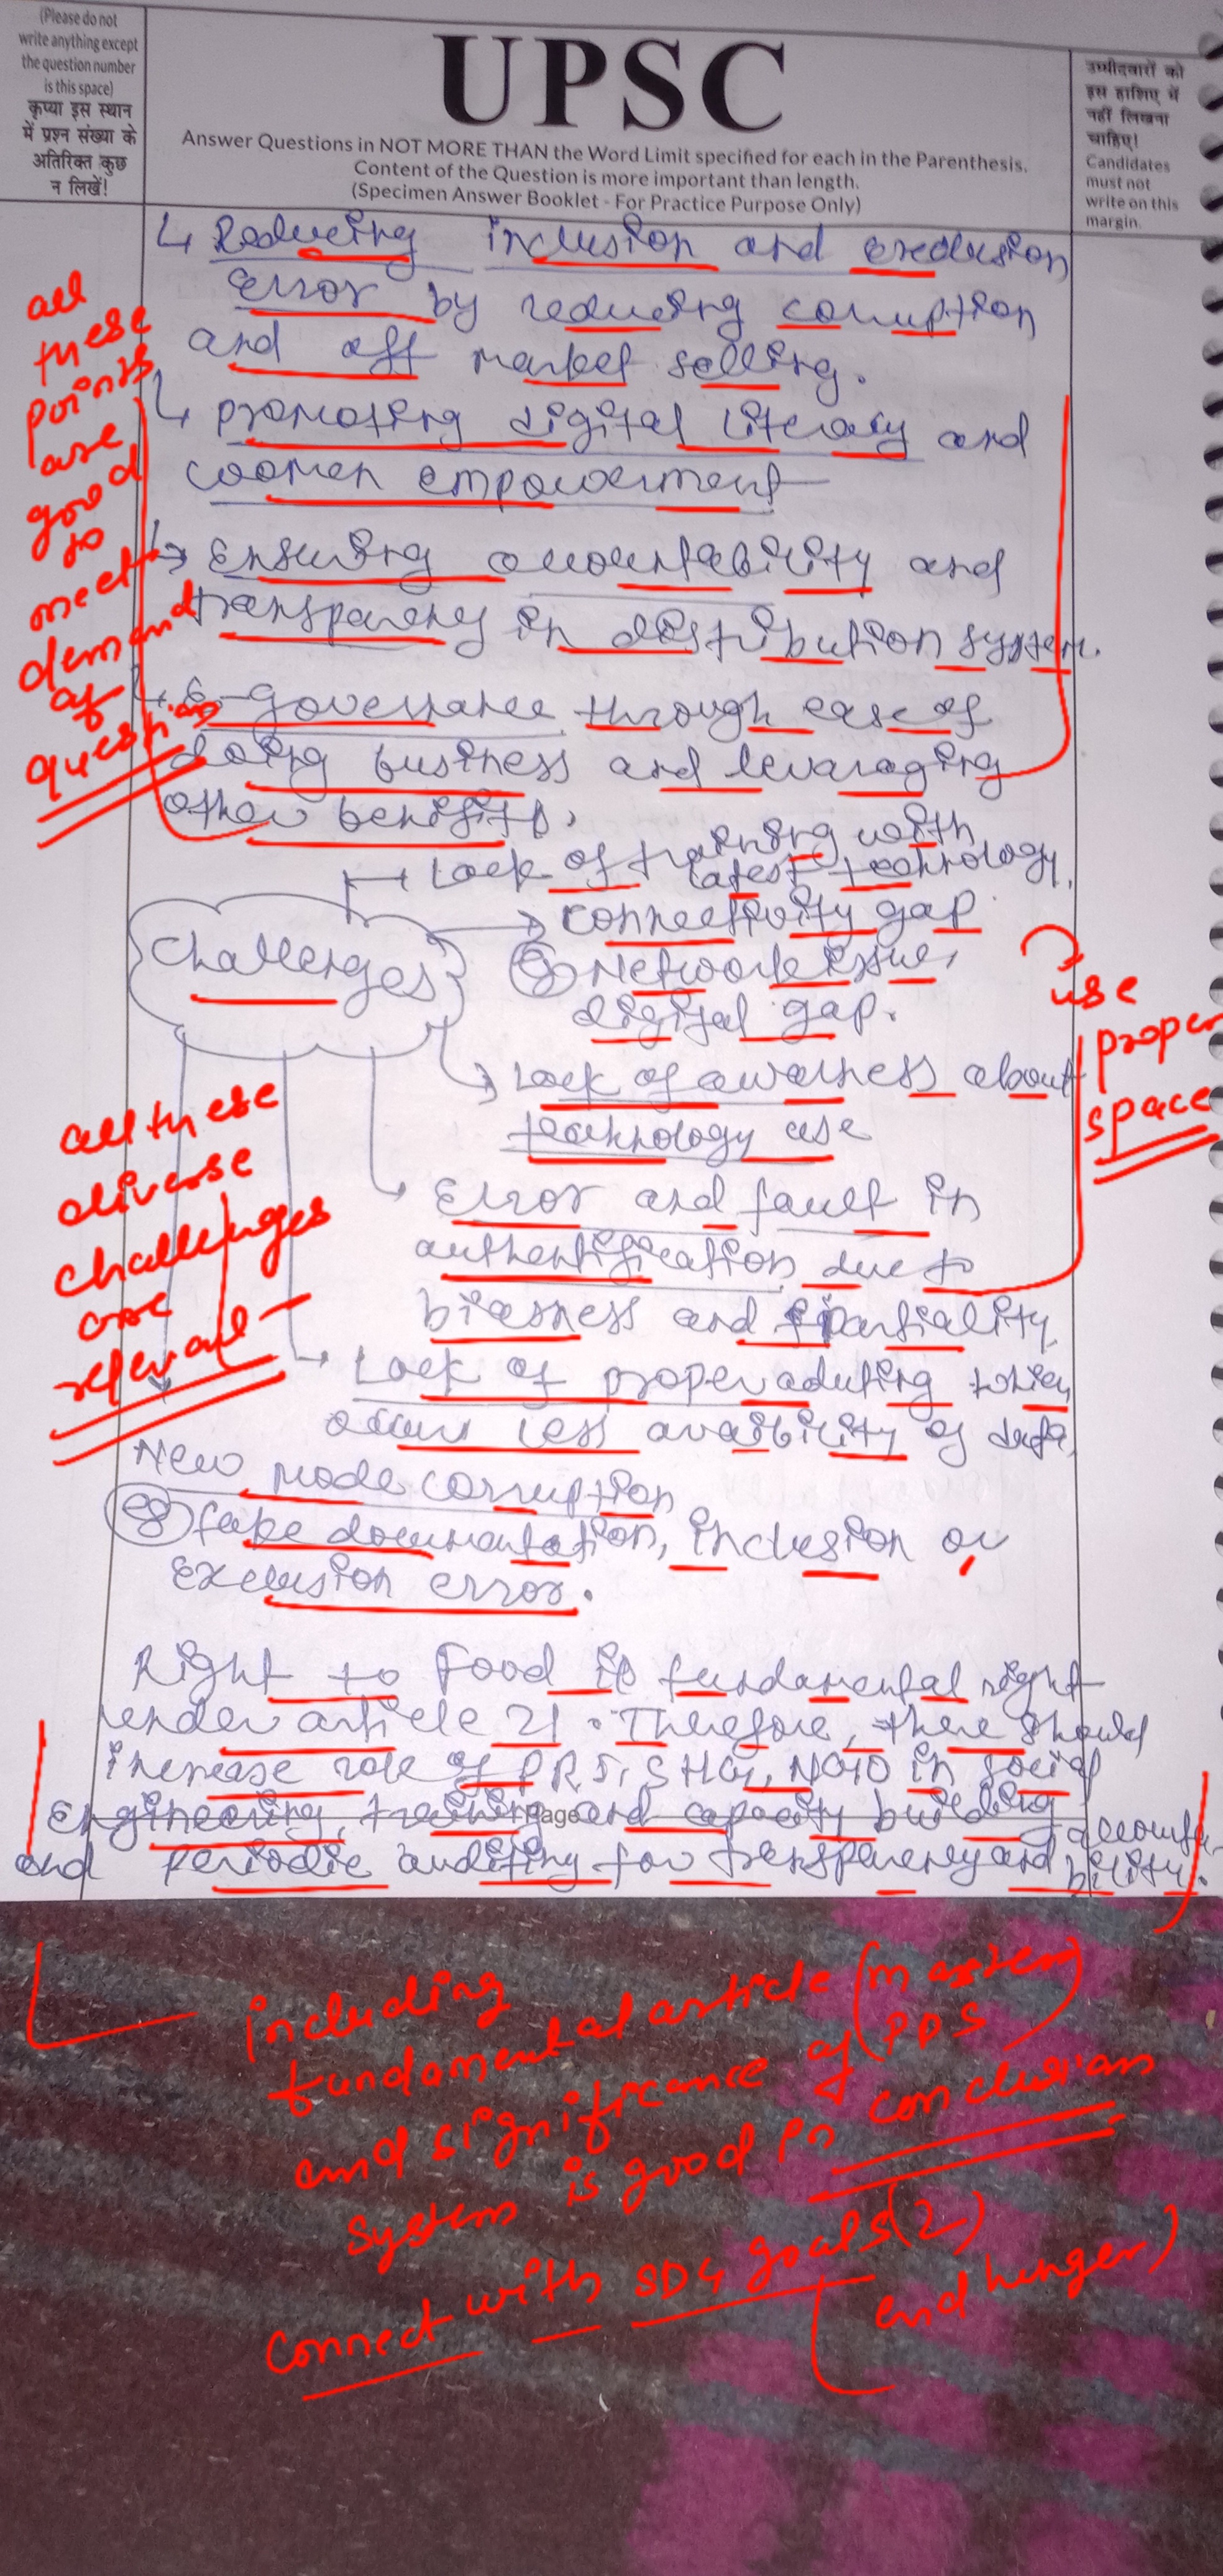 (Please do not
write anything except
the question number
is this space)
कृप्या इस स्थान
में प्रश्न संख्या के
अतिरिक्त कुछ
न लिखें!
UPSC
Answer Questions in NOT MORE THAN the Word Limit specified for each in the Parenthesis.
Content of the Question is more important than length.
(Specimen Answer Booklet - For Practice Purpose Only)
उम्मीदवारों को
इस हाशिए में
नहीं लिखना
चाहिए!
Candidates
must not
write on this
margin.
↳ Reducing inclusion and exclusion
Error by reducing corruption
and off market selling.
↳ promoting digital literacy and
women empowerment
↳ Ensuring accountability and
transparency in distribution system.
↳ E-governance through ease of
doing business and levaraging
other benifits.
all
these
points
are
good
to
meet
demand
of
question
Challenges
Lack of training with
latest technology.
connectivity gap
eg Network issue,
digital gap.
Lack of awarness about
technology use
Error and fault in
authentification due to
biasness and partiality
Lack of proper auditing
occurs less avaibility of data
New mode corruption
eg fake documentation, inclusion or
Exclusion error.
use
proper
space
all these
diverse
challenges
are
relevant
Right to Food is fundamental right
under article 21. Therefore, there should
increase role of PRI, SHG, NGO in social
Engineering, training and capacity building
Page
and periodic auditing for transparency and accountability.
including
fundamental article (mention)
and significance of (PDS)
system is good in conclusion
connect with SDG goals (2)
end hunger)